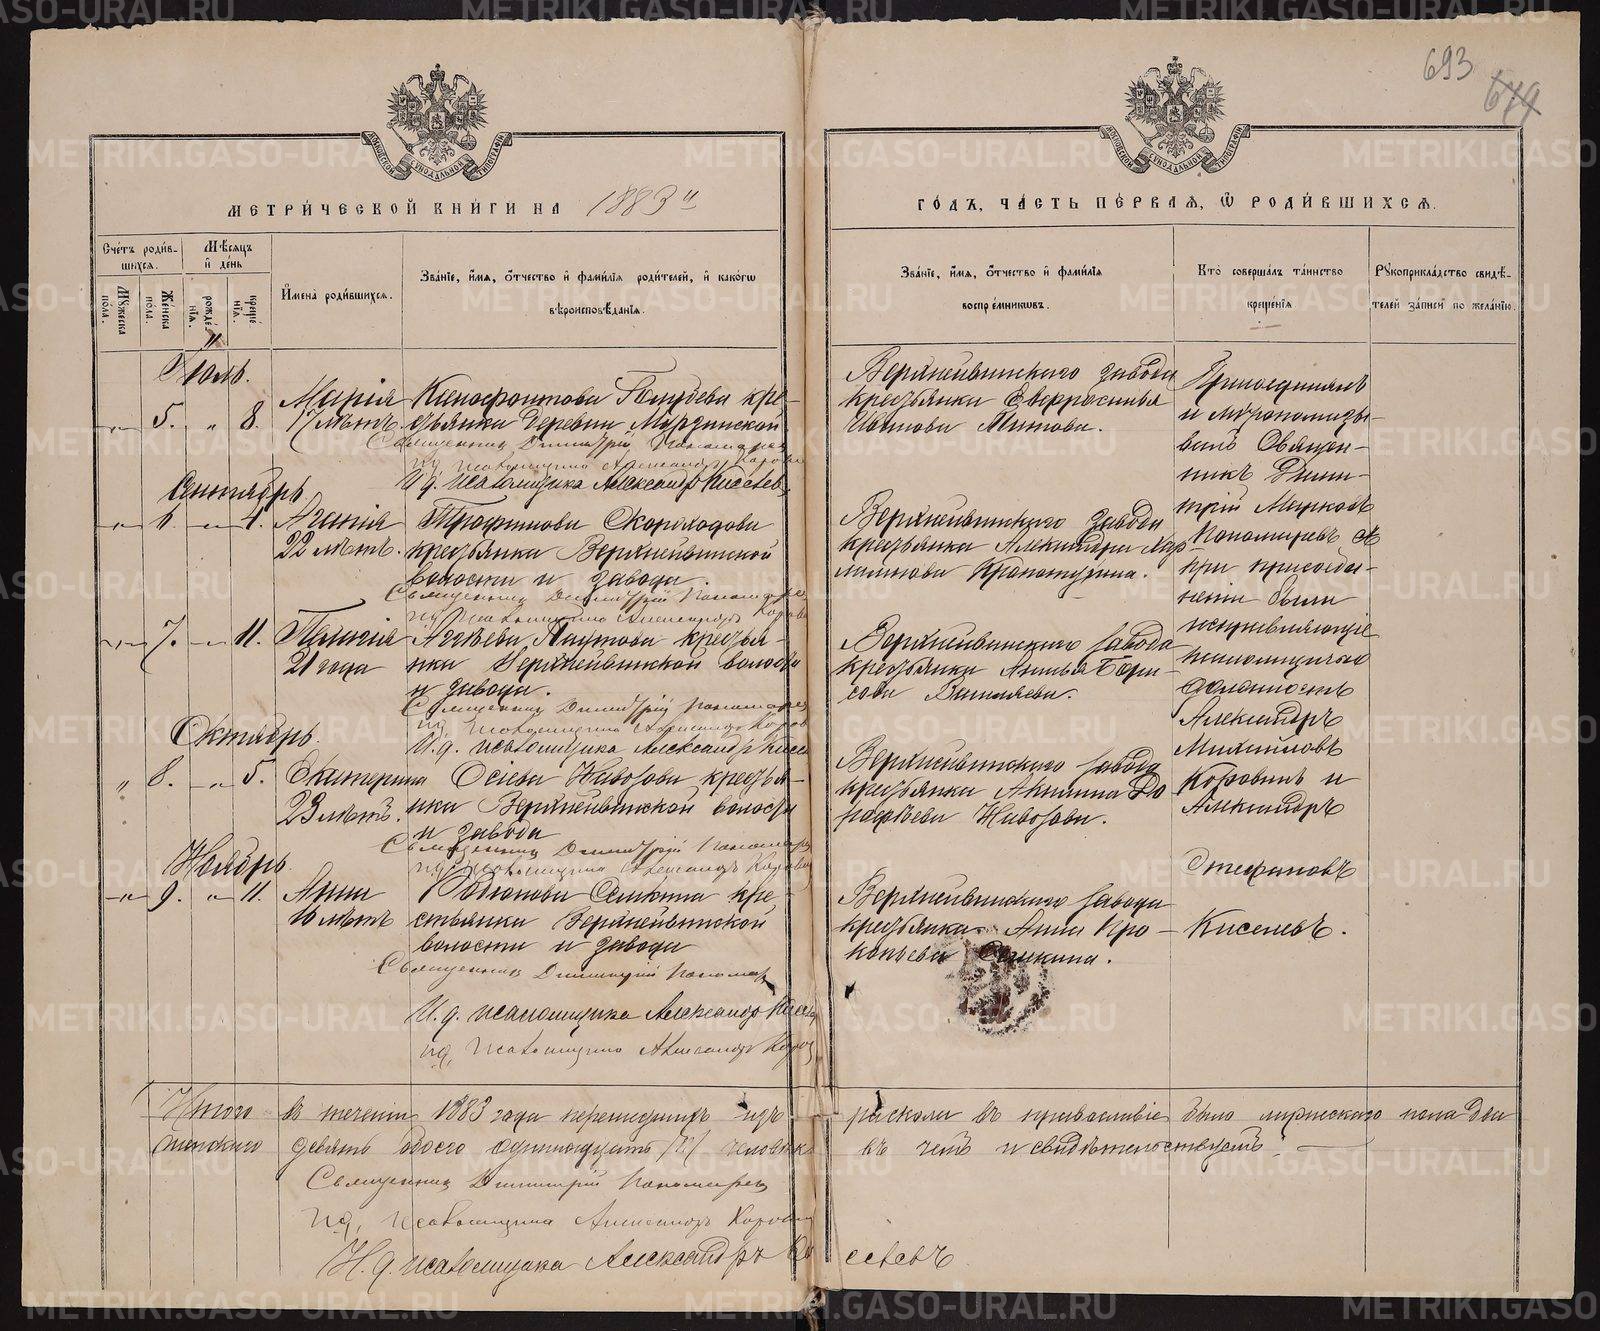 693
679
МЕТРИ́ЧЕСКОЙ КНИ́ГИ НА 1883й
ГО́ДЪ, ЧА́СТЬ ПЕ́РВАѦ, Ѡ РОДИ́ВШИХСѦ.
Сче́тъ роди́в-
шихся.
Мѣ́сяцъ
и де́нь
Мꙋ́жеска
по́ла.
Же́нска
по́ла.
рожде́
нїѧ.
креще́
нїѧ.
И҆мена̀ роди́вшихся.
Зва́нїе, и҆́мѧ, ѻ҆́тчество и҆ фами́лїѧ роди́телей, и҆ како́гѡ
вѣроисповѣ́данїѧ.
Зва́нїе, и҆́мѧ, ѻ҆́тчество и҆ фами́лїѧ
воспрїе́мникѡвъ.
Кто̀ соверша́лъ та́инство
креще́нїѧ
Рꙋкоприкла́дство свидѣ́-
телей за́писи по жела́нїю.
Іюль.
„ 5. „ 8.
Марія
17 лѣтъ.
Ксенофонтова Голубева кре-
стьянка деревни Мурзинской
Священникъ Димитрій Пономарев
И.д. псаломщика Александръ Корови
И.д. псаломщика Александръ Киселев
Верхнейвинского завода
крестьянка Евфросинья
Иванова Титова.
Присоединялъ
и мѵропомазы-
валъ Священ-
никъ Дими-
трій Марковъ
Пономаревъ а
при присоеди-
неніи были
исправляющіе
псаломщическ
должность
Александръ
Михайловъ
Коровинъ и
Александръ
Стефановъ
Киселевъ.
Сентябрь
„ 6. „ 4.
Агенія
22 лѣтъ.
Трофимова Скороходова
крестьянка Верхнейвинской
волости и завода.
Священникъ Димитрій Пономарев
И.д. псаломщика Александръ Корови
Верхнейвинского завода
крестьянка Александра Хар-
лампова Кропотухина.
„ 7. „ 11.
Таисія
21 года
Агѣева Плутова крестья-
нка Верхнейвинской волости
и завода.
Священникъ Димитрій Пономарев
И.д. псаломщика Александръ Коров
И.д. псаломщика Александръ Кисе
Верхнейвинского завода
крестьянка Анисья Бори-
сова Ванилаева.
Октябрь.
„ 8. „ 5.
Екатерина
23 лѣтъ.
Осіева Навозова крестья-
нка Верхнейвинской волости
и завода
Священникъ Димитрій Пономарев
И.д. псаломщика Александръ Корови
Верхнейвинского завода
крестьянка Акилина До
рофѣева Навозова.
Ноябрь
„ 9. „ 11.
Анна
16 лѣтъ
Родіонова Семкина кре-
стьянка Верхнейвинской
волости и завода
Священникъ Димитрій Пономар
И.д. псаломщика Александръ Кисел
И.д. псаломщика Александръ Коров
Верхнейвинского завода
крестьянка Анна Про-
копьева Семкина.
Итого въ теченіи 1883 года перешедшихъ изъ раскола въ православіе было мужескаго пола два
женскаго девять обоего одиннадцать /11/ человѣкъ въ чемъ и свидѣтельствуемъ.
Священникъ Димитрій Пономарев
И.д. псаломщика Александръ Корови
И.д. псаломщика Александръ Киселевъ
METRIKI.GASO-URAL.RU